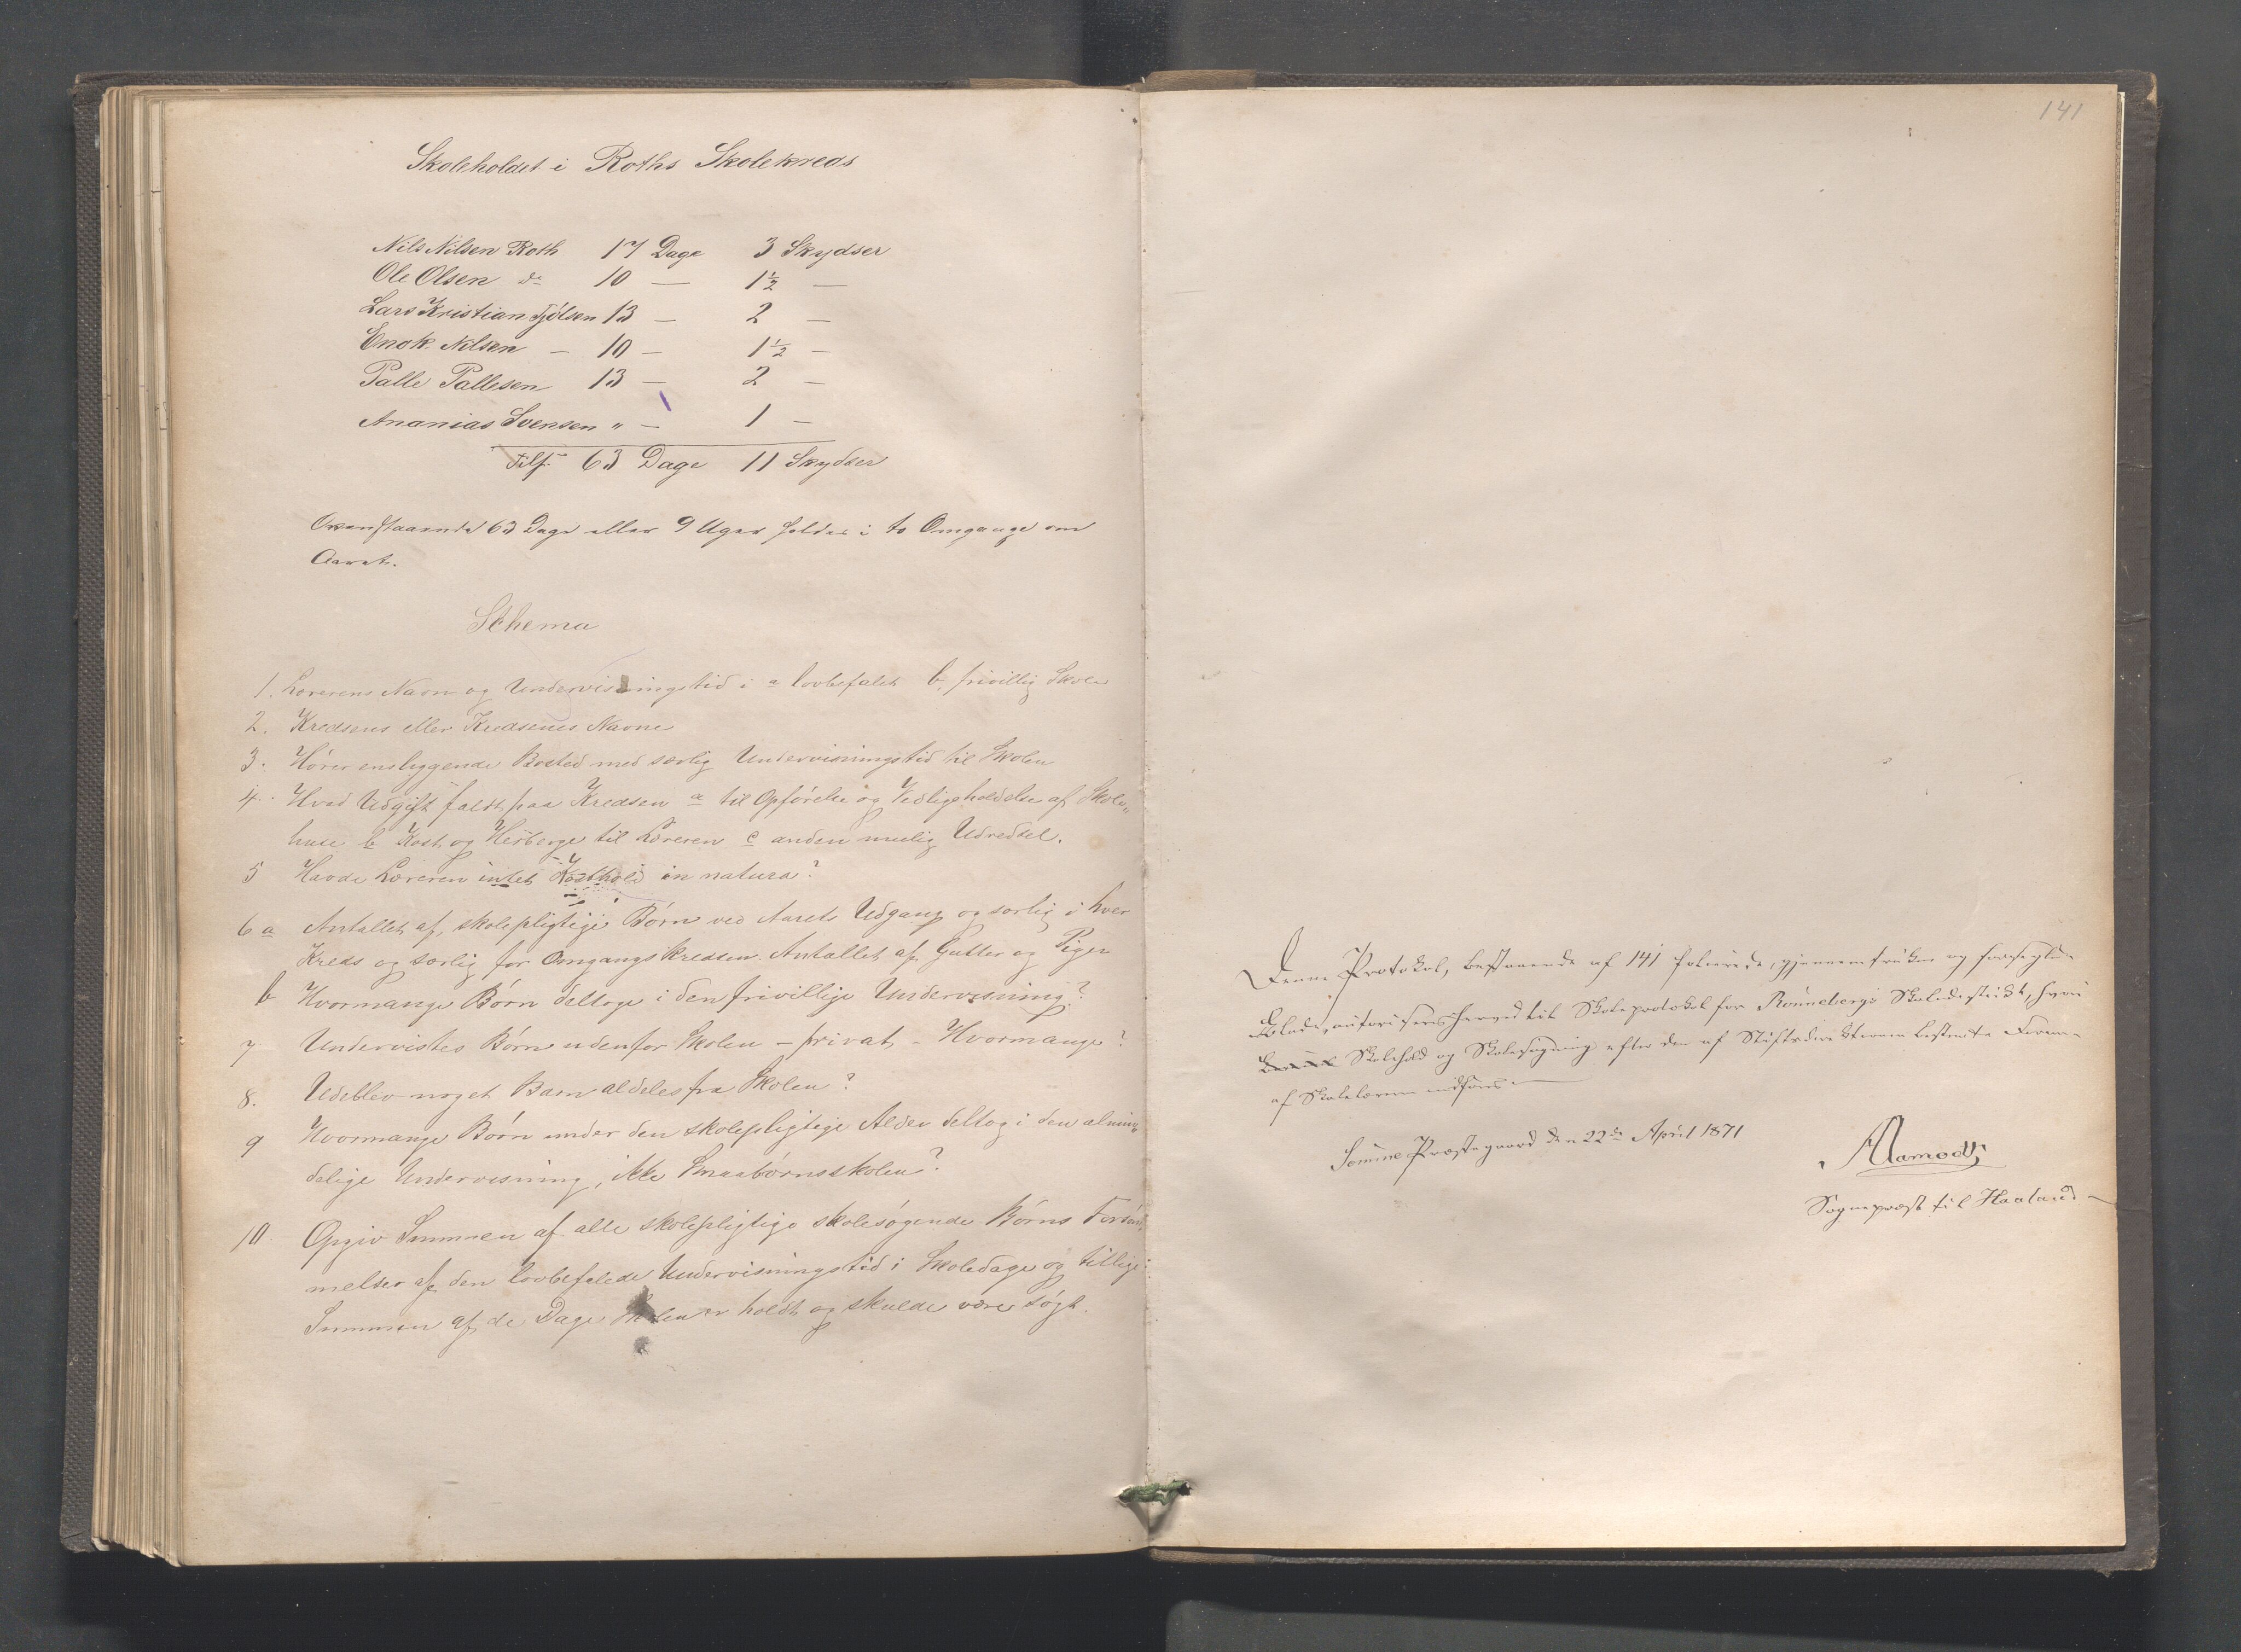 Skoleholdet i Roths Skolekreds
Nils Nilsen Roth 17 Dage 3 Skydser
Ole Olsen do 10 — 1½ —
Lars Kristian Tjölsen 13 — 2 —
Enok Nilsen — 10 — 1½ —
Palle Pallesen 13 — 2 —
Ananias Svensen " — 1 —
Tils. 63 Dage 11 Skydser
Ovenstaaende 63 Dage eller 9 Uger holdes i to Omgange om
Aaret.
Schema
1. Lærerens Navn og Undervisningstid i a lovbefalet b, frivillig Skole
2. Kredsens eller Kredsenes Navne
3. Hører ensliggende Bosted med særlig Undervisningstid til Skolen
4. Hvad Udgift faldt paa Kredsen a til Opførelse og Vedligeholdelse af Skole„
huse b Kost og Herberge til Læreren c anden mulig Udredsel.
5 Havde Læreren intet Kosthold in natura?
6 a Antallet af skolepligtige Børn ved Aarets Udgang og særlig i hver
Kreds og særlig for Omgangskredsen. Antallet af Gutter og Piger
b Hvormange Børn deltoge i den frivillige Undervisning?
7 Undervistes Børn udenfor Skolen – privat – Hvormange?
8. Udeblev noget Barn aldeles fra Skolen?
9 Hvormange Børn under den skolepligtige Alder deltog i den almin„
delige Undervisning, ikke Smaabørnsskolen?
10. Opgiv Summen af alle skolepligtige skolesøgende Børns Forsøm„
melser af den lovbefalede Undervisningstid i Skoledage og tillige
Summen af de Dage Skolen er holdt og skulde være søgt.
141
Denne Protokol, bestaaende af 141 folierede, gjennemtrukne og forseglede
Blade, autoriseres herved til Skoleprotokol for Rønnebergs Skoledistrikt, hvori
Skolehold og Skolesøgning efter den af Stiftsdirektionen bestemte Form
af Skolelæreren indføres.
Præstegaard den 22de April 1871
Aamodt
Sognepræst til Haaland